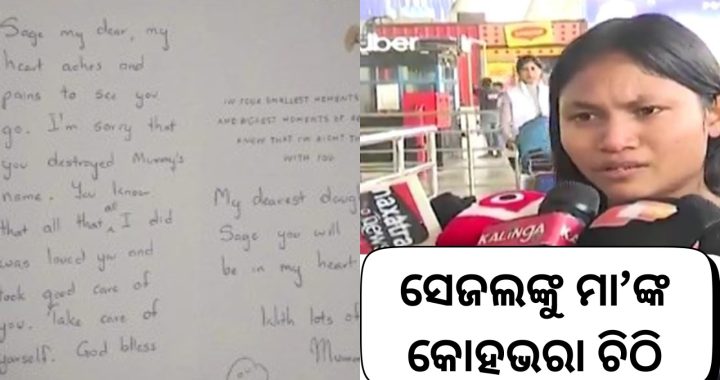 Sage my dear, my
heart aches and
pains to see you
go. I'm sorry that
you destroyed Mummy's
name. You know
that all that I did
was loved you and
took good care of
you. Take care of
yourself. God bless
IN YOUR SMALLEST MOMENTS
AND BIGGEST MOMENTS OF
KNOW THAT I'M RIGHT
WITH YOU
My dearest
Sage you will
be in my heart
With lots of
uber
KALINGA
ସେଜଲଙ୍କୁ ମା’ଙ୍କ
କୋହଭରା ଚିଠି